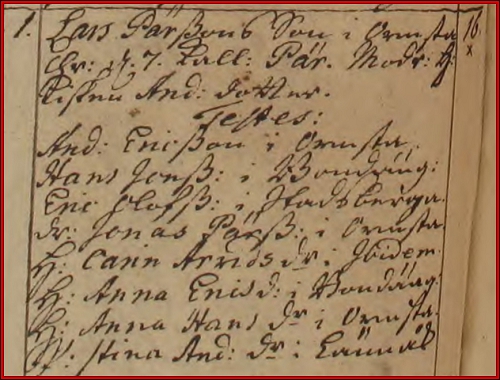 1. Lars Pärßons Son i Ormsta 16
Chr: d. 7. Kall: Pär. Modr: H: x
Kisten And: dotter.
Testes:
And: Ericßon i Ormsta
Hans Jonß: i Wondräng:
Eric Olofß: i Stadsberga.
dr: Jonas Pärß: i Ormsta
H: Carin Arvids dr i Ibidem
H: Anna Erics d: i Wondräng:
H: Anna Hans dr i Ormsta.
P: Stina And: dr: i